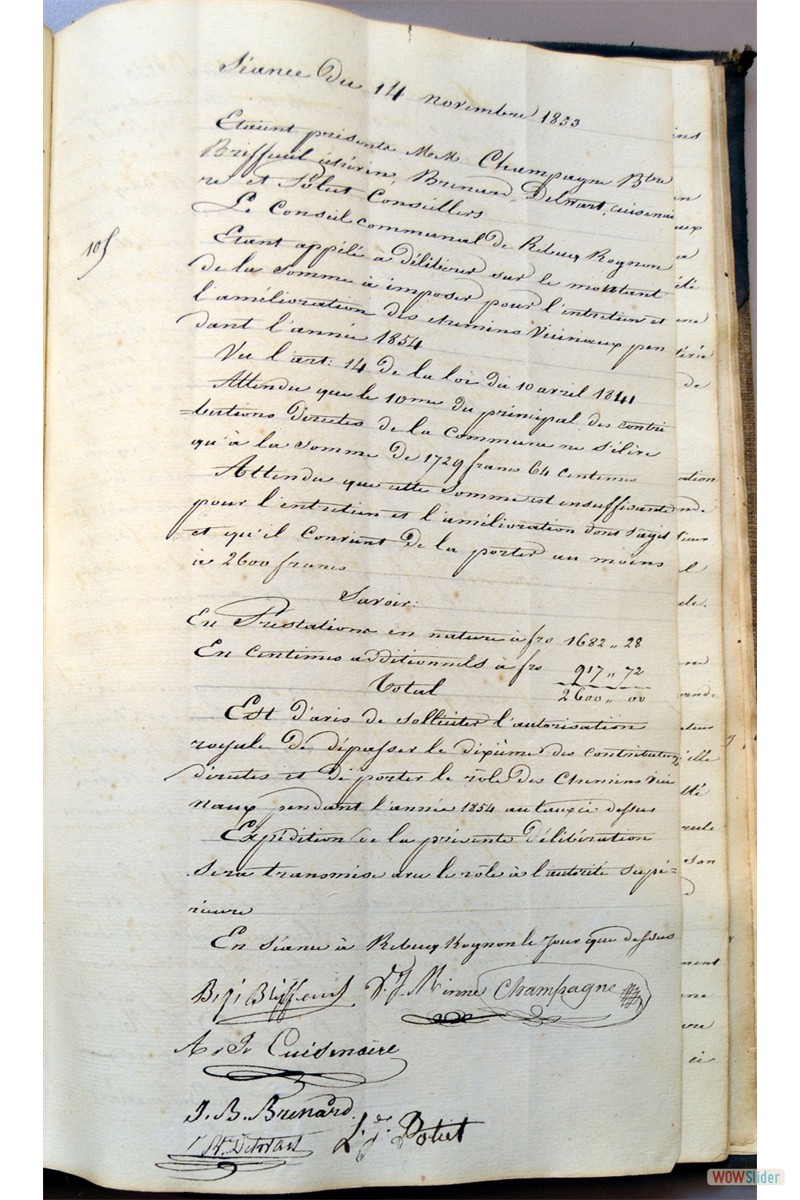 Séance du 14 novembre 1853
Etaient présents MM Champagne Btre
Briffeuil échevin, Brenard, Delwart, Cuisenai
re et Polet Conseillers
Le Conseil communal de Rebecq Rognon
105
Etant appelé à délibérer sur le montant
de la somme à imposer pour l'entretien et
l'amélioration des chemins Vicinaux pen
dant l'année 1854
Vu l'art: 14 de la loi du 10 avril 1841
Attendu que le 10me du principal des contri
=butions directes de la commune ne s'élève
qu'à la somme de 1729 francs 64 centimes
Attendu que cette somme est insuffisante
pour l'entretien et l'amélioration dont s'agit
et qu'il convient de la porter au moins
à 2600 francs
Savoir:
En Prestations en nature à frs 1682 „ 28
En Centimes additionnels à frs 917 „ 72
Total 2600 „ 00
Est d'avis de solliciter l'autorisation
royale de dépasser le dixième des contributions
directes et de porter le rôle des Chemins Vici
naux pendant l'année 1854 au taux ci dessus
Expédition de la présente délibération
sera transmise avec le rôle à l'autorité supé=
rieure
En séance à Rebecq Rognon le jour que dessus
Briffeuil Minne Champagne
Cuisenaire
J. B. Brenard
Delwart Polet
WOWSlider